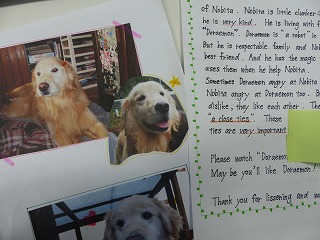 of Nobita. Nobita is little clumsy
he is very kind. He is living with
"Doraemon". Doraemon is "a robot" in
But he is respectable family and Nobi
best friend. And he has the magic
uses them when he help Nobita.
Sometimes Doraemon angry at Nobita
Nobita angry at Doraemon too. Bu
dislike, they like each other. The
"a close ties". These
ties are very important
Please watch "Doraemon
May be you'll like Doraemon!
Thank you for listening and wa